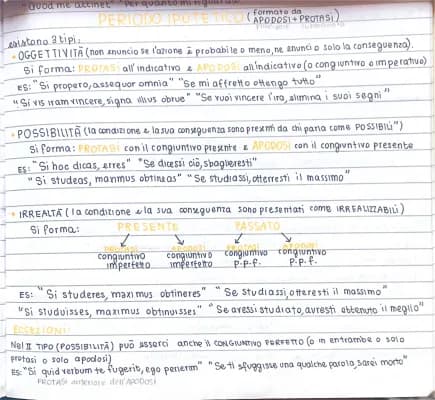 "Quod me attinet" "Per quanto mi riguarda"
PERIODO IPOTETICO (formato da
APODOSI + PROTASI)
esistono 3 tipi:
• OGGETTIVITÀ (non enuncio se l'azione è probabile o meno, ne enuncio solo la conseguenza).
Si forma: PROTASI all'indicativo e APODOSI all'indicativo (o congiuntivo o imperativo)
ES: "Si propero, assequor omnia" "Se mi affretto ottengo tutto"
"Si vis iram vincere, signa illius obrue" "Se vuoi vincere l'ira, elimina i suoi segni"
• POSSIBILITÀ (la condizione e la sua conseguenza sono presenti da chi parla come POSSIBILI")
Si forma: PROTASI con il congiuntivo presente e APODOSI con il congiuntivo presente
ES: "Si hoc dicas, erres" "Se dicessi ciò, sbaglieresti"
"Si studeas, maximus obtineas" "Se studiassi, otterresti il massimo"
• IRREALTÀ (la condizione e la sua conseguenza sono presentati come IRREALIZZABILI)
Si forma: PRESENTE PASSATO
PROTASI APODOSI PROTASI APODOSI
congiuntivo congiuntivo congiuntivo congiuntivo
imperfetto imperfetto p.p.f. p.p.f.
ES: "Si studeres, maximus obtineres" "Se studiassi, otteresti il massimo"
"Si studuisses, maximus obtinuisses" "Se avessi studiato, avresti ottenuto il meglio"
ECCEZIONI:
Nel II TIPO (POSSIBILITÀ) PUÒ esserci anche il CONGIUNTIVO PERFETTO (o in entrambe o solo
protasi o solo apodosi)
ES: "Si quid verbum te fugerit, ego perierim" "Se ti sfuggisse una qualche parola, sarei morto"
PROTASI anteriore dell'APODOSI